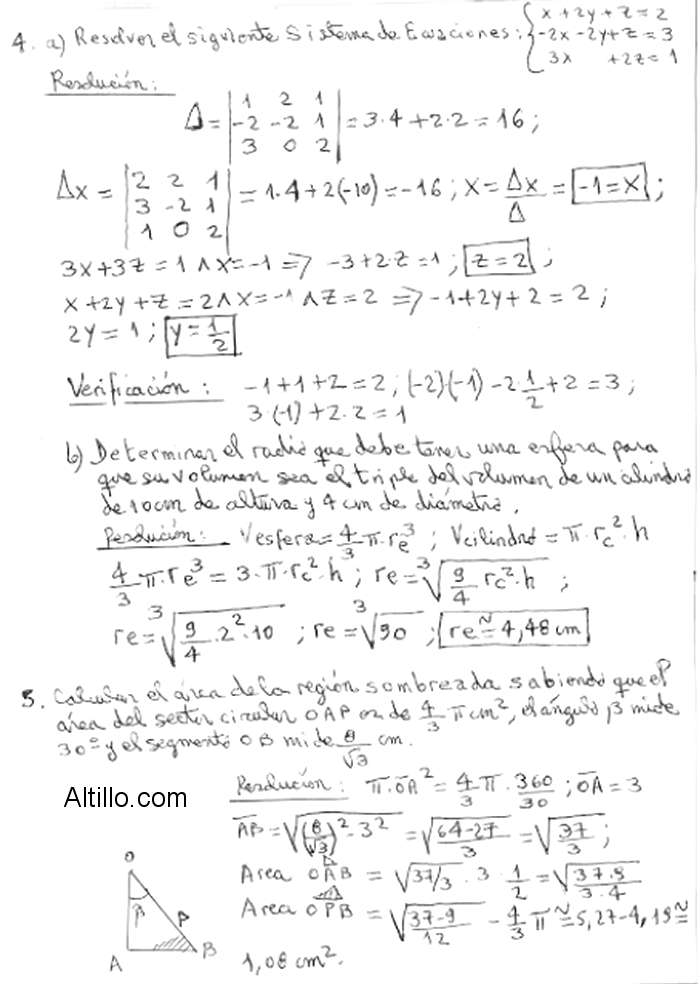 4. a) Resolver el siguiente Sistema de Ecuaciones: { x + 2y + z = 2
-2x - 2y + z = 3
3x + 2z = 1
Resolución:
Δ = | 1 2 1 |
| -2 -2 1 | = 3·4 + 2·2 = 16;
| 3 0 2 |
Δx = | 2 2 1 |
| 3 -2 1 | = 1·4 + 2(-10) = -16; X = Δx/Δ = -1 = X;
| 1 0 2 |
3x + 3z = 1 ∧ X = -1 => -3 + 2·z = 1; z = 2;
x + 2y + z = 2 ∧ X = -1 ∧ z = 2 => -1 + 2y + 2 = 2;
2y = 1; y = 1/2
Verificación: -1 + 1 + 2 = 2; (-2)(-1) - 2·1/2 + 2 = 3;
3·(-1) + 2·2 = 1
b) Determinar el radio que debe tener una esfera para
que su volumen sea el triple del volumen de un cilindro
de 10cm de altura y 4 cm de diámetro.
Resolución: Vesfera = 4/3 π·re³; Vcilindro = π·rc²·h
4/3·π·re³ = 3·π·rc²·h; re = ∛(9/4 rc²·h);
re = ∛(9/4·2²·10); re = ∛90; re ≅ 4,48 cm
5. Calcular el área de la región sombreada sabiendo que el
área del sector circular OAP es de 4/3 π cm², el ángulo β mide
30º y el segmento OB mide 8/√3 cm.
Resolución: π·OA² = 4/3 π·360/30; OA = 3
Altillo.com
AB = √((8/√3)² - 3²) = √((64-27)/3) = √(37/3);
Area OAB = √(37/3)·3·1/2 = √(37·9/(3·4))
Area OPB = √(37·9/12) - 4/3 π ≅ 5,27 - 4,19 ≅
1,08 cm².
O
β P
A B